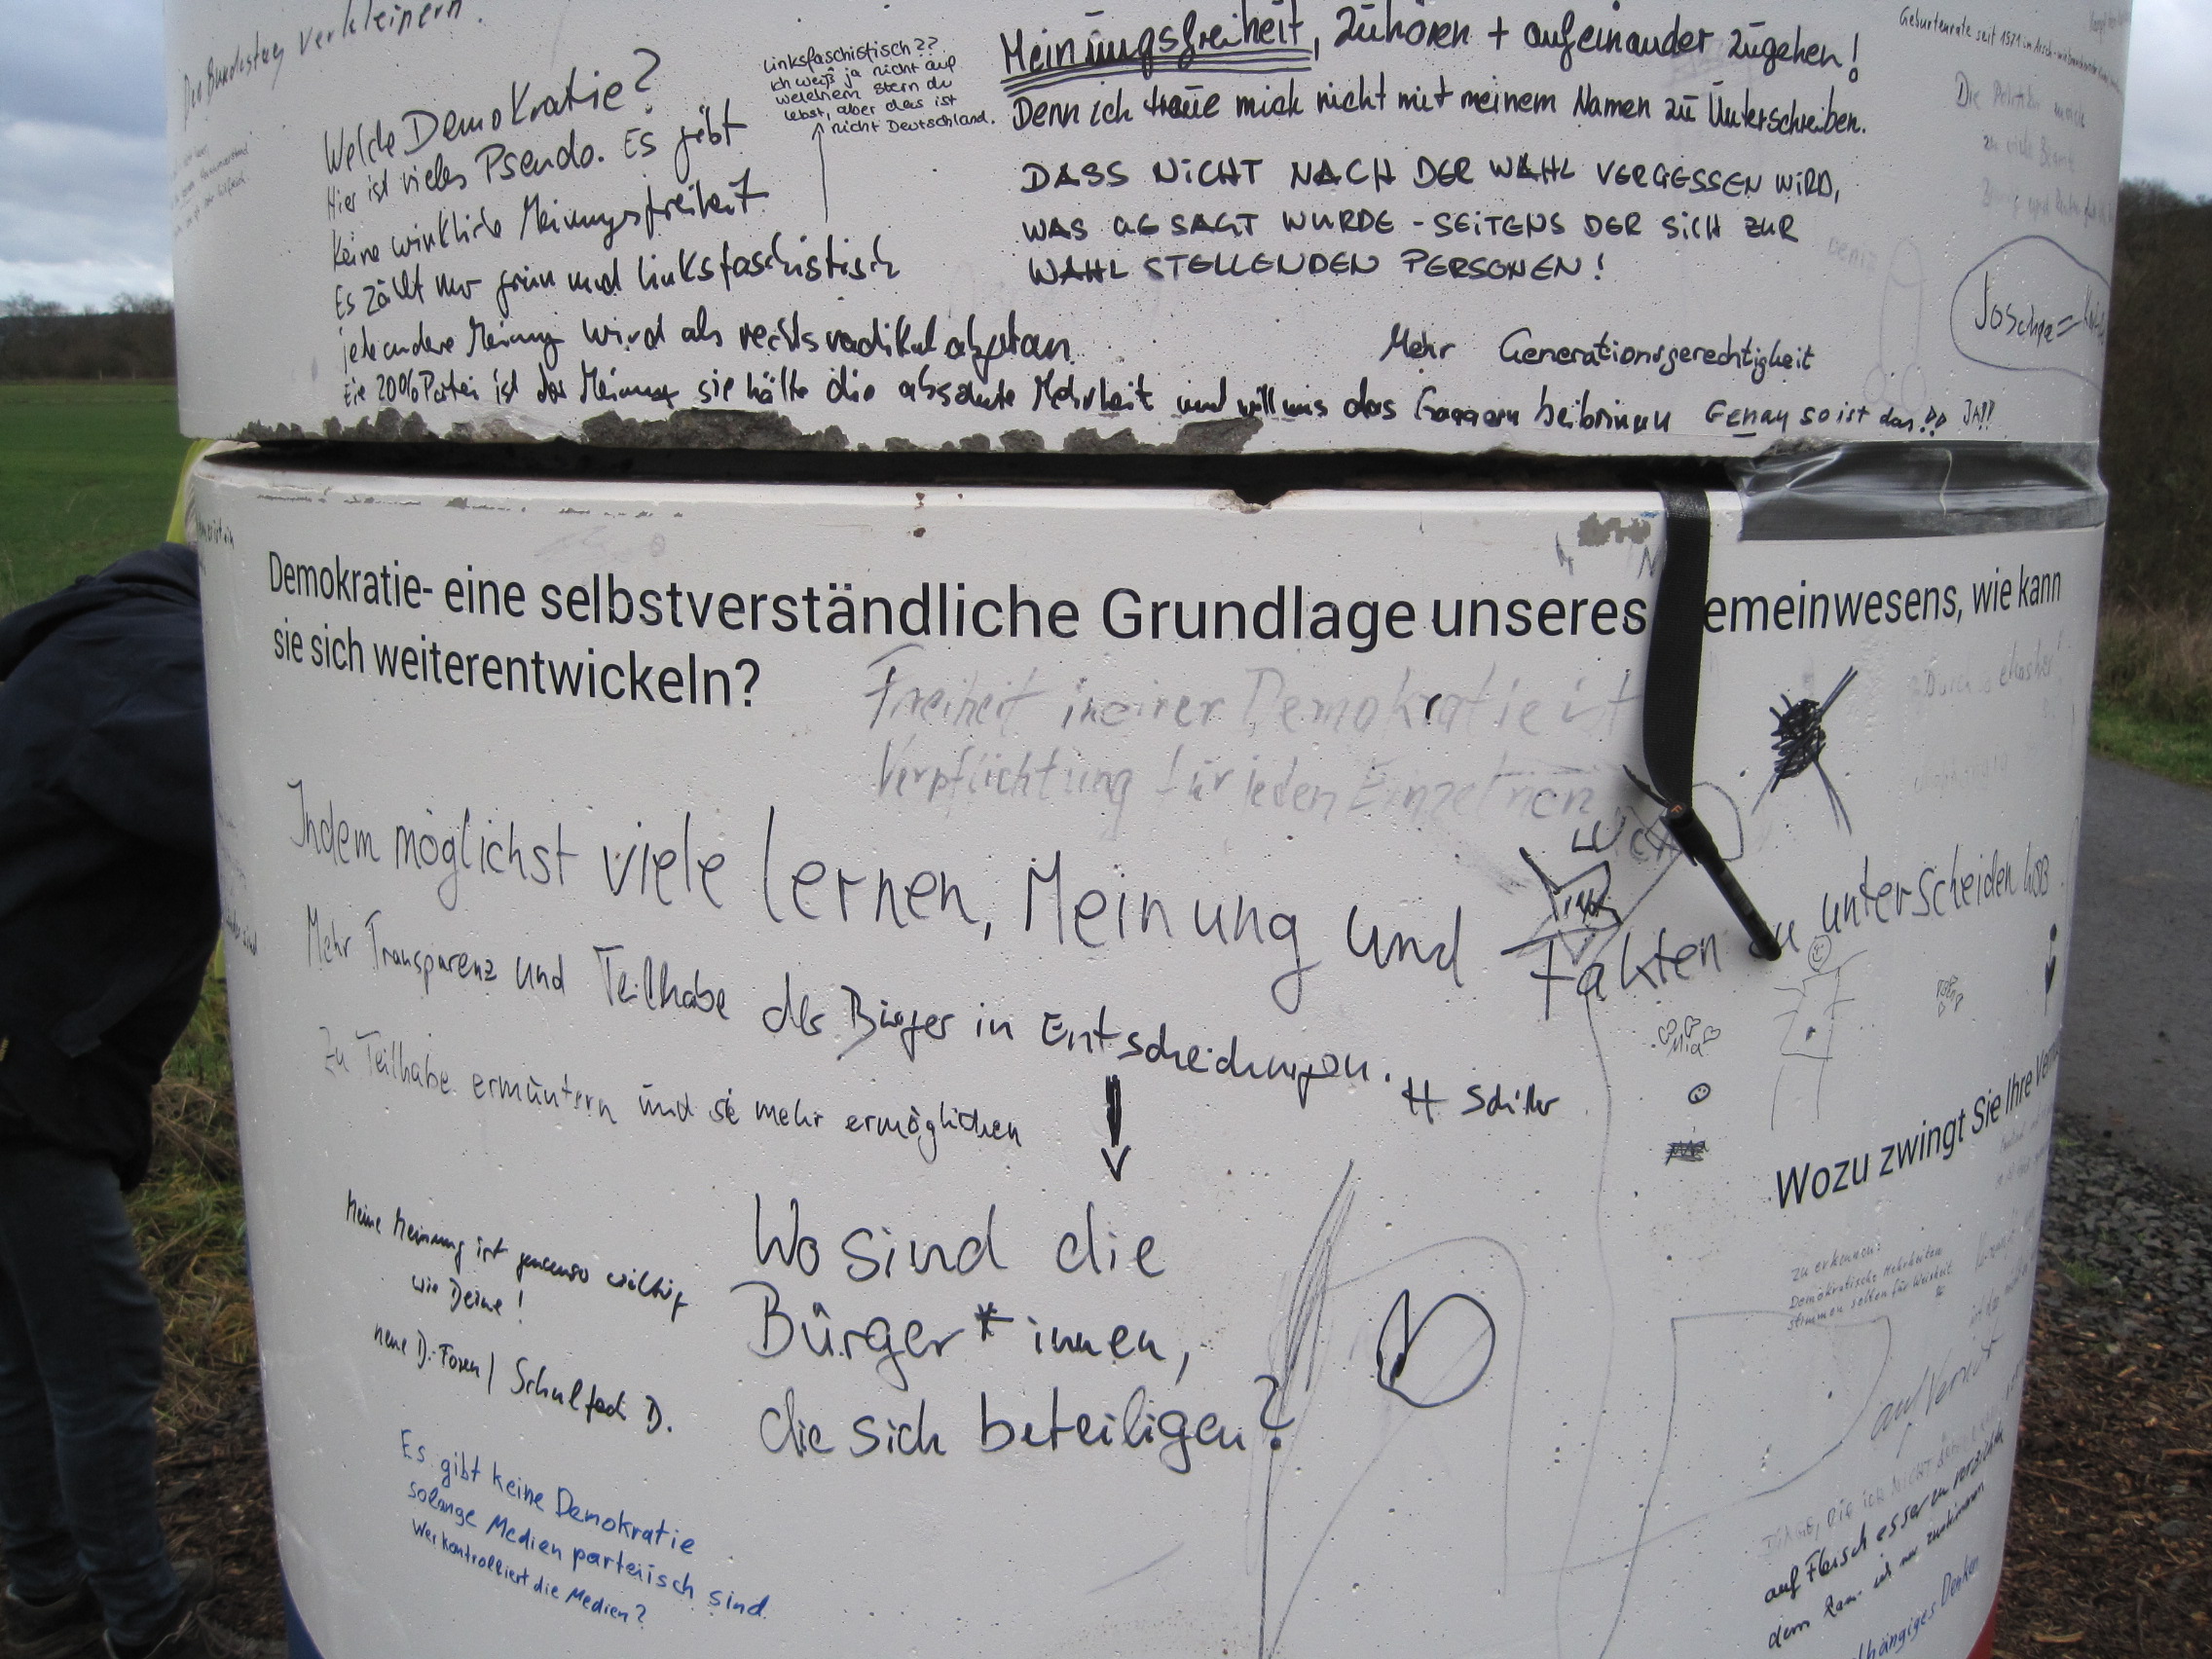 Den Bundestag verkleinern.
Welche Demokratie?
Hier ist vieles Pseudo. Es gibt
keine wirkliche Meinungsfreiheit
Es zählt nur grün und linksfaschistisch
jede andere Meinung wird als rechtsradikal abgetan.
Eine 20% Partei ist der Meinung sie hätte die absolute Mehrheit und will uns das beibringen
Linksfaschistisch??
ich weiß ja nicht auf
welchem Stern du
lebst, aber das ist
nicht Deutschland.
Meinungsfreiheit, Zuhören + aufeinander zugehen!
Denn ich traue mich nicht mit meinem Namen zu Unterschreiben.
DASS NICHT NACH DER WAHL VERGESSEN WIRD,
WAS GESAGT WURDE - SEITENS DER SICH ZUR
WAHL STELLENDEN PERSONEN!
Mehr Generationsgerechtigkeit
Genau so ist das!! JA!!
Geburtenrate seit 1971 im
Die Politik
Joscha =
Demokratie- eine selbstverständliche Grundlage unseres emeinwesens, wie kann
sie sich weiterentwickeln?
Freiheit in einer Demokratie ist
Verpflichtung für jeden Einzelnen
Indem möglichst viele lernen, Meinung und Fakten zu unterscheiden
Mehr Transparenz und Teilhabe der Bürger in Entscheidungen. H Schiller
Zu Teilhabe ermuntern und sie mehr ermöglichen
Mia
Wo sind die
Bürger*innen,
die sich beteiligen?
Meine Meinung ist genauso wichtig
wie Deine!
neue D.-Foren / Schulfach D.
Es gibt keine Demokratie
solange Medien parteiisch sind.
Wer kontrolliert die Medien?
Wozu zwingt Sie Ihre
zu erkennen:
Demokratische Mehrheiten
stimmen selten für Weisheit
auf Verzicht
auf Fleisch essen zu verzichten
dem kann ich nur zustimmen
Denken